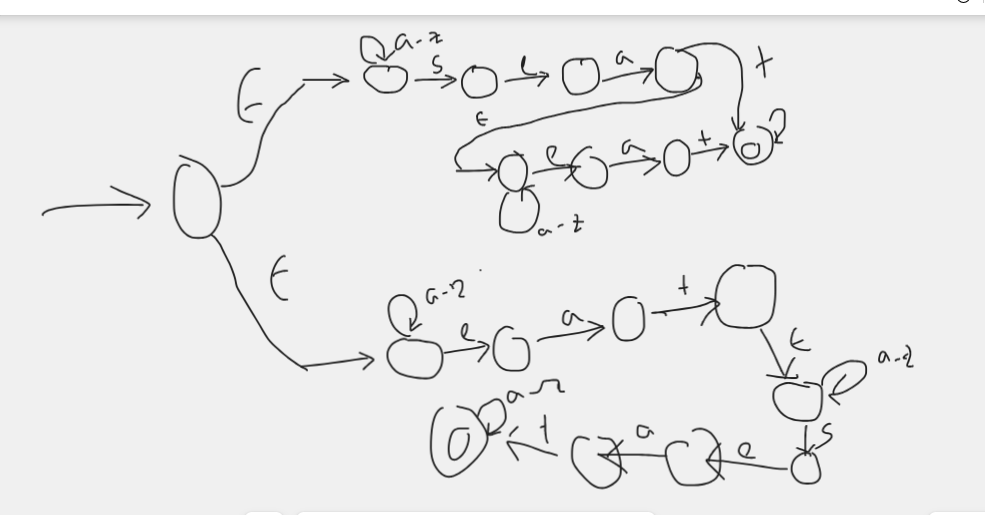 a-z
s l a t
ϵ
ϵ
e a t
a-z
ϵ
a-z
e a t
ϵ
a-z
a-z
t a e s